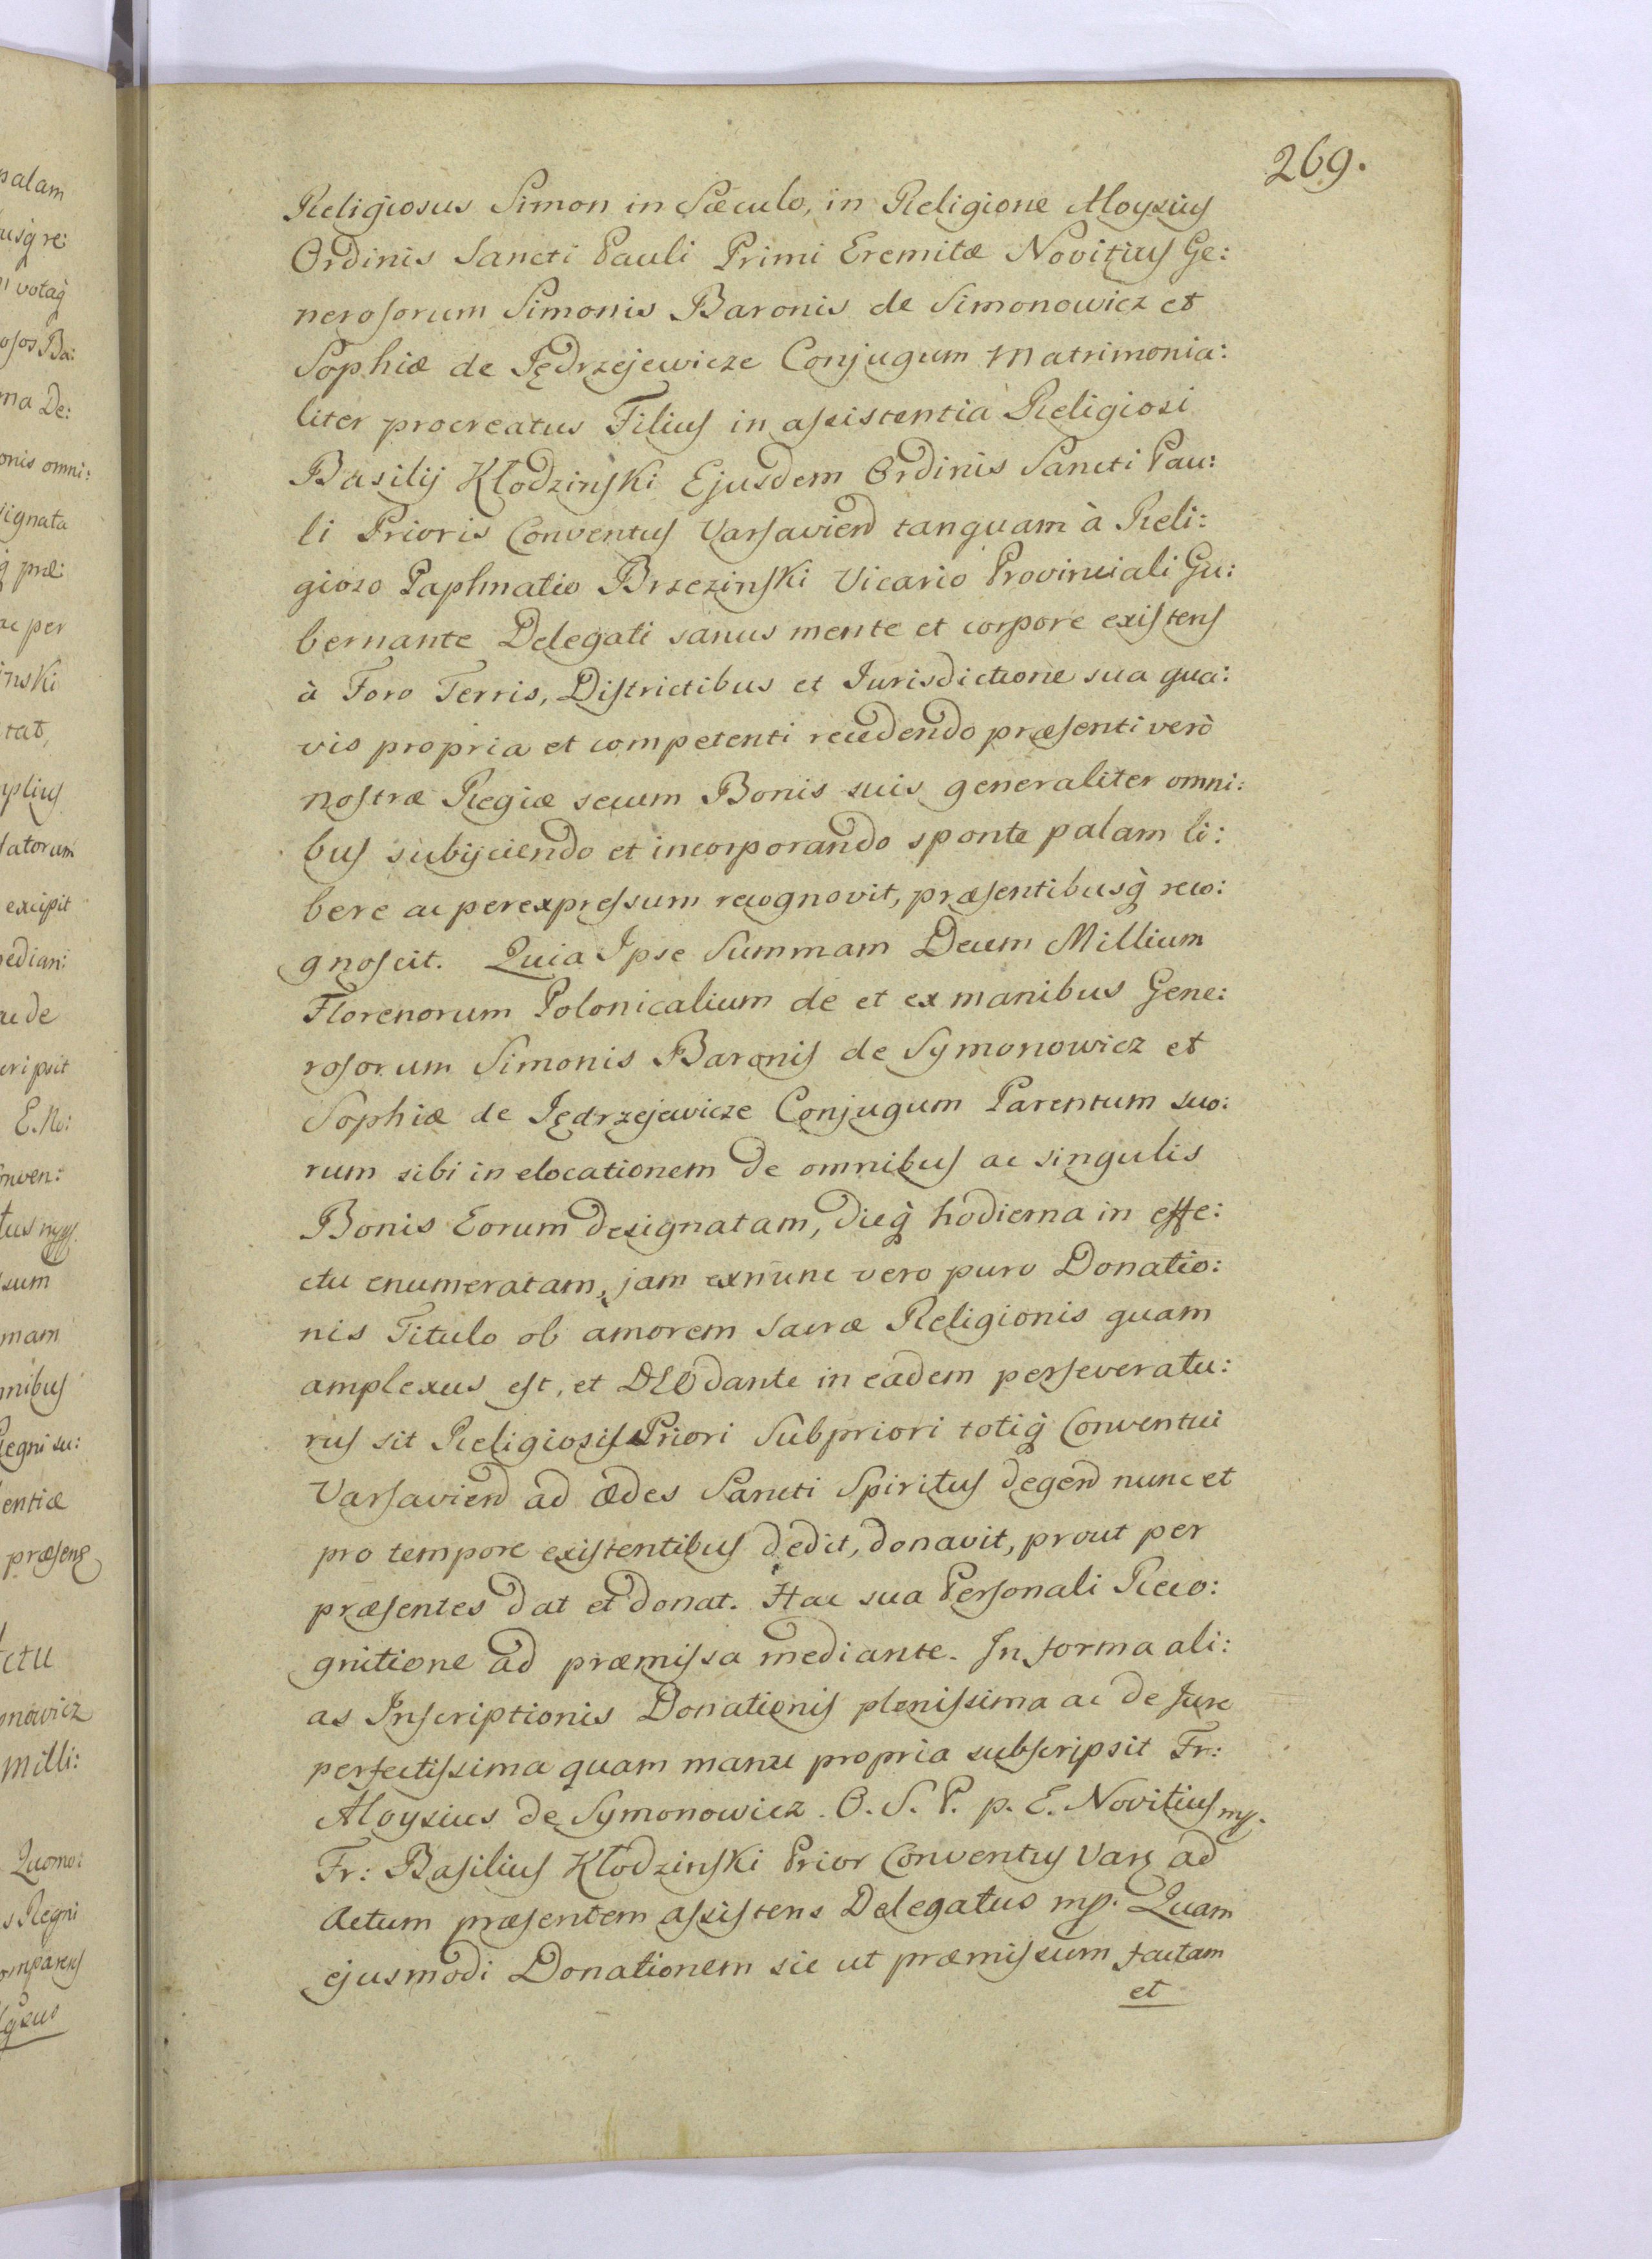 269.
Religiosus Simon in Sæculo, in Religione Aloysius
Ordinis Sancti Pauli Primi Eremitæ Novitius Ge:
nerosorum Simonis Baronis de Simonowicz et
Sophiæ de Jędrzejewicze Conjugum Matrimonia:
liter procreatus Filius in assistentia Religiosi
Basilij Kłodzinski Ejusdem Ordinis Sancti Pau:
li Prioris Conventus Varsavien tanquam à Reli:
gioso Paphnatio Brzezinski Vicario Provinciali Gu:
bernante Delegati sanus mente et corpore existens
à Foro Terris, Districtibus et Jurisdictione sua qua:
vis propria et competenti recedendo præsenti verò
nostræ Regiæ secum Bonis suis generaliter omni:
bus subijciendo et incorporando sponte palam li:
bere ac perexpressum recognovit, præsentibusq̀ reco:
gnoscit. Quia Ipse Summam Decem Millium
Florenorum Polonicalium de et ex manibus Gene:
rosorum Simonis Baronis de Symonowicz et
Sophiæ de Jędrzejewicze Conjugum Parentum suo:
rum sibi in elocationem de omnibus ac singulis
Bonis Eorum designatam, dieq̀ hodierna in effe:
ctu enumeratam, jam exnunc vero puro Donatio:
nis Titulo ob amorem Sacræ Religionis quam
amplexus est, et DEO dante in eadem perseveratu:
rus sit Religiosis Priori Subpriori totiq̀ Conventui
Varsavien ad Ædes Sancti Spiritus degen nunc et
pro tempore existentibus dedit, donavit, prout per
præsentes dat et donat. Hac sua Personali Reco:
gnitione ad præmissa mediante. In forma ali:
as Inscriptionis Donationis plenissima ac de Jure
perfectissima quam manu propria subscripsit Fr:
Aloysius de Symonowicz. O. S. P. p. E. Novitius mp.
Fr: Basilius Kłodzinski Prior Conventus Vars ad
Actum præsentem assistens Delegatus mp. Quam
ejusmodi Donationem sic ut præmissum factam
et
palam
usq̀ re:
votaq̀
osos Ba:
ma De:
onis omni:
signata
præ:
ac per
inski
tat,
latorum
excipit
median:
ac de
scripsit
E. No:
onven:
sum
mam
mnibus
Regni su:
entiæ
præsens
ctu
onowicz
Milli:
Quomo:
s Regni
omparens